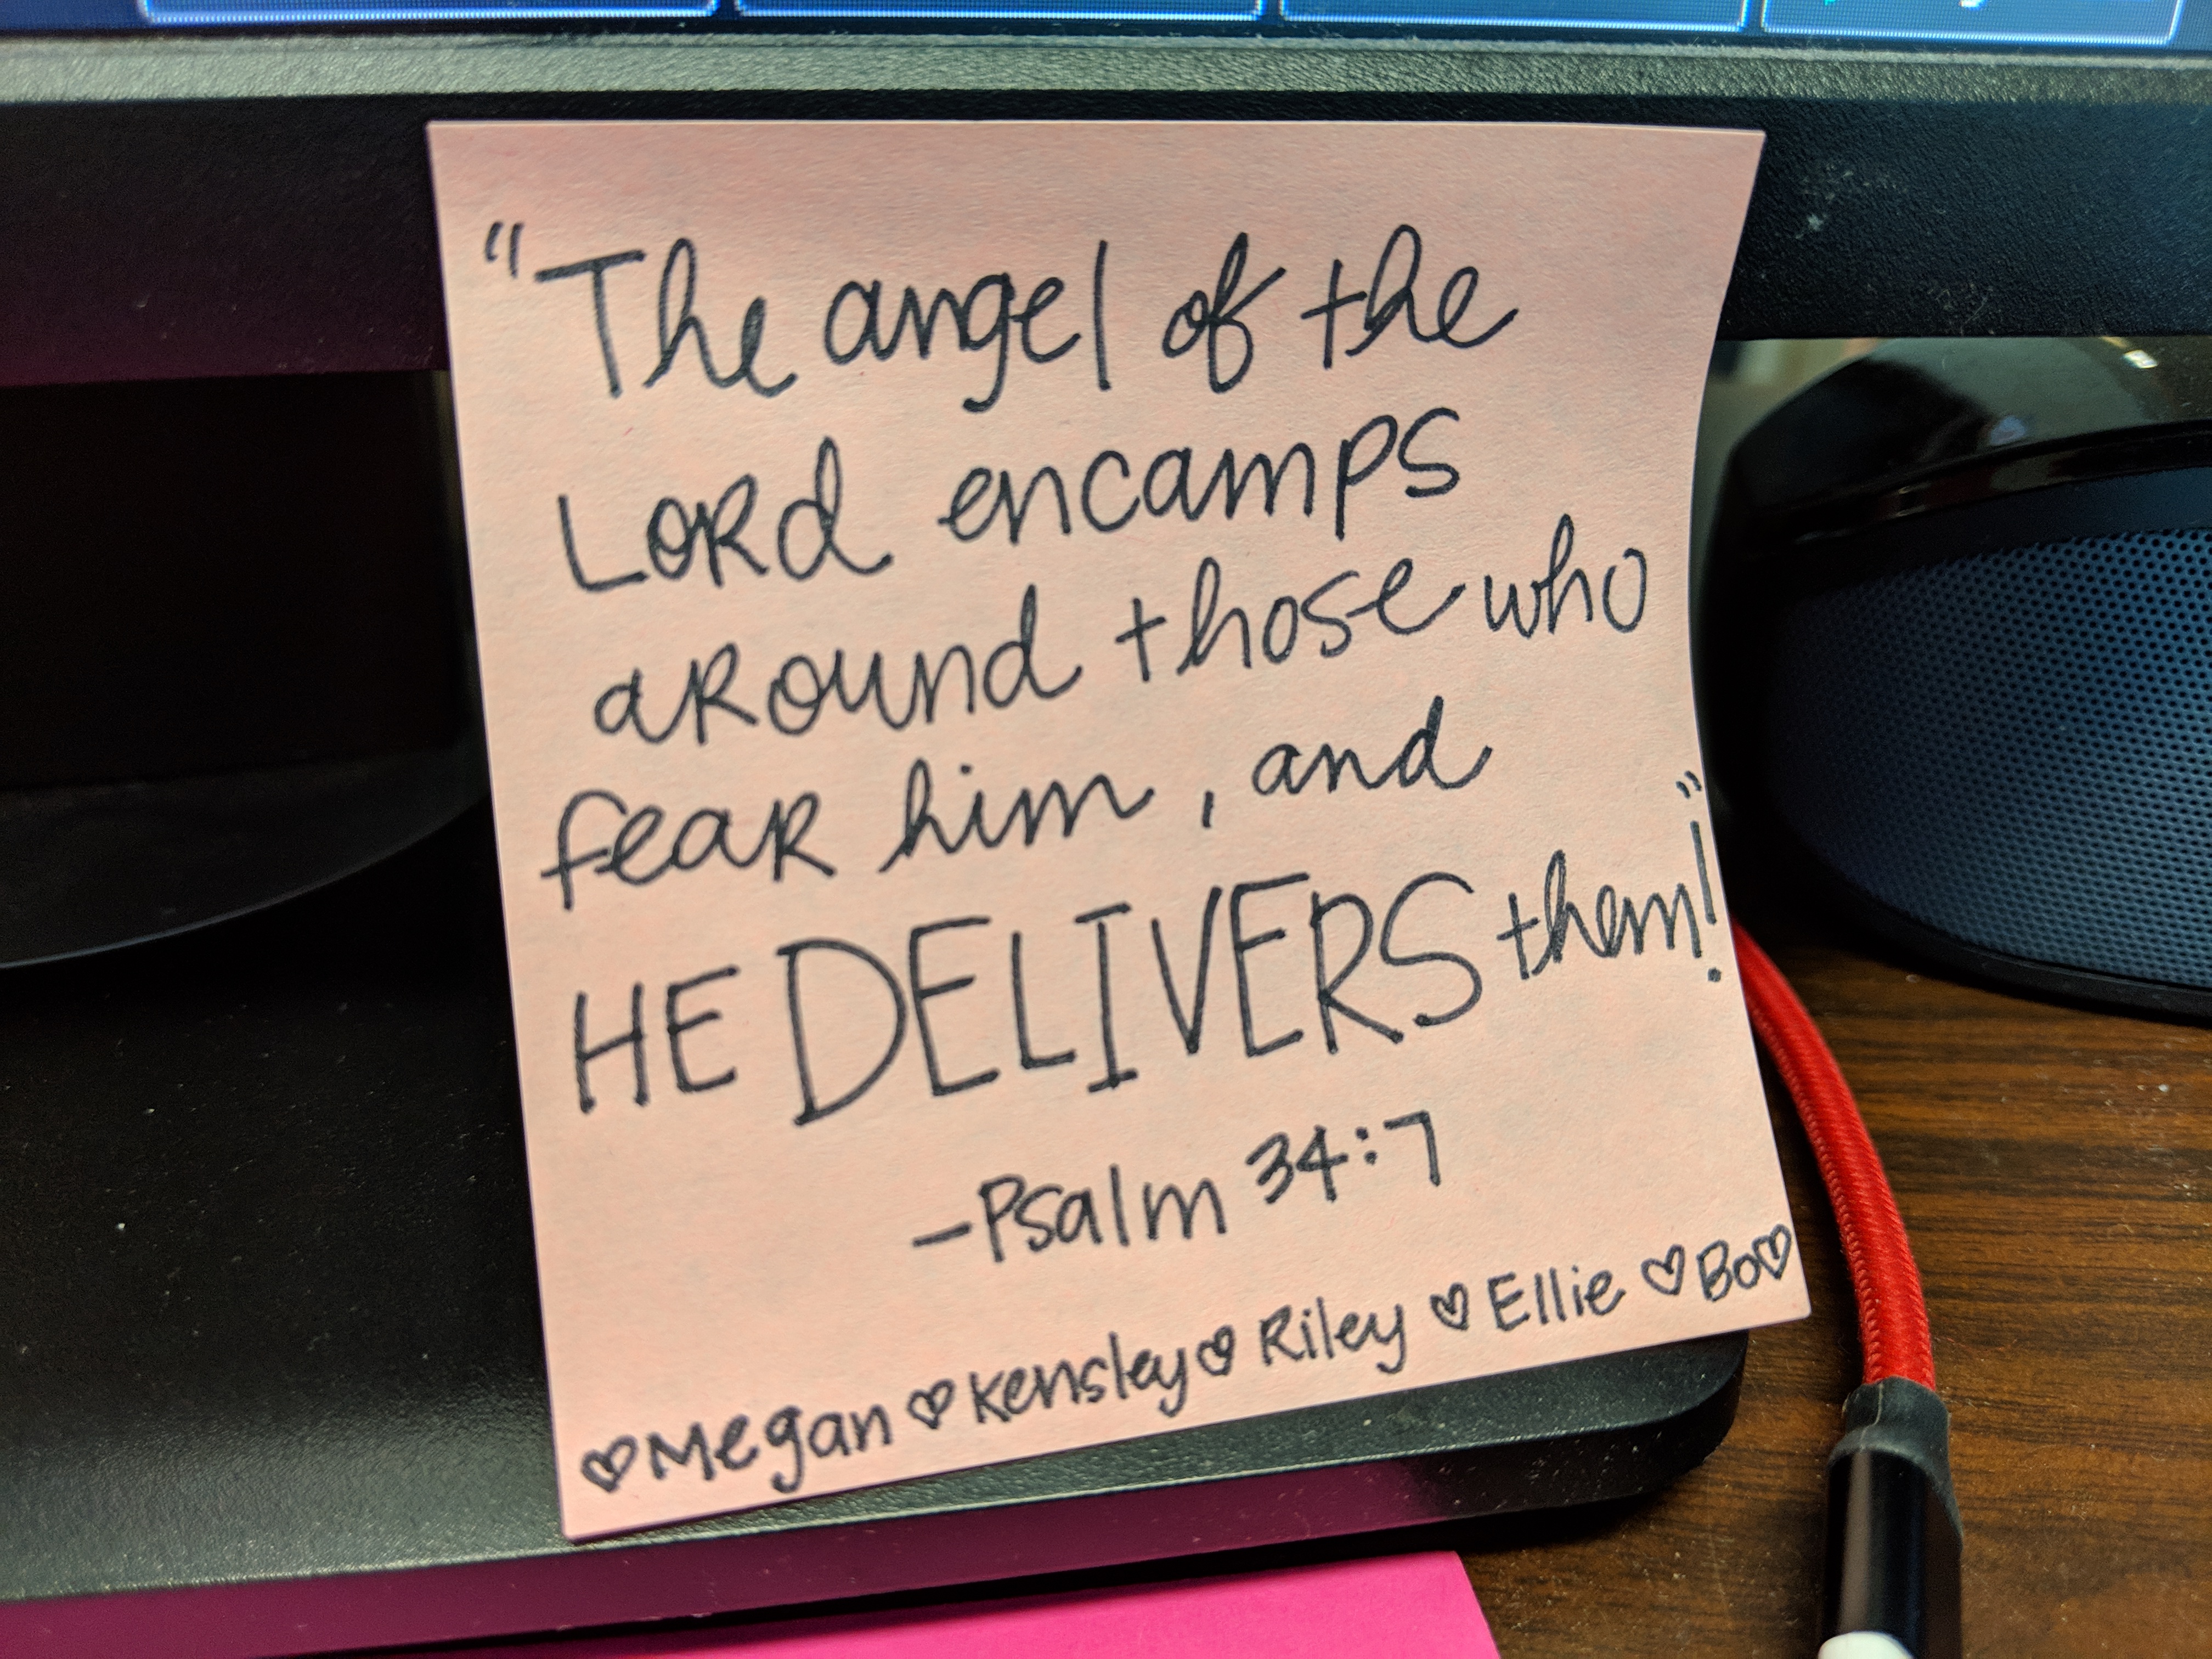 "The angel of the
LORd encamps
aRound those who
feaR him, and
HE DELIVERS them!"
-Psalm 34:7
♡Megan ♡Kensley♡ Riley ♡ Ellie ♡Bo♡